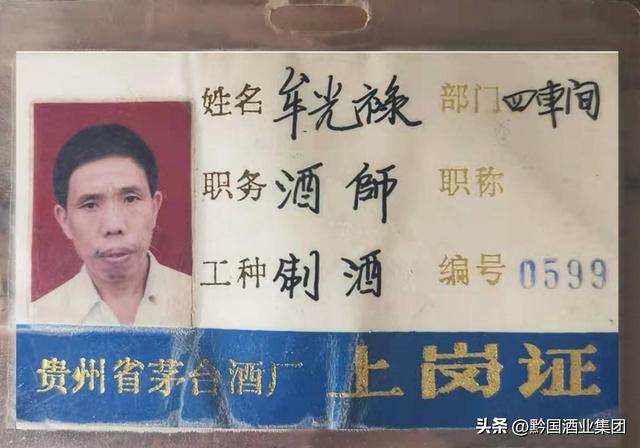 姓名 牟光禄 部门 四車间
职务 酒師 职称
工种 制酒 编号 0599
贵州省茅台酒厂 上岗证
头条 @黔国酒业集团